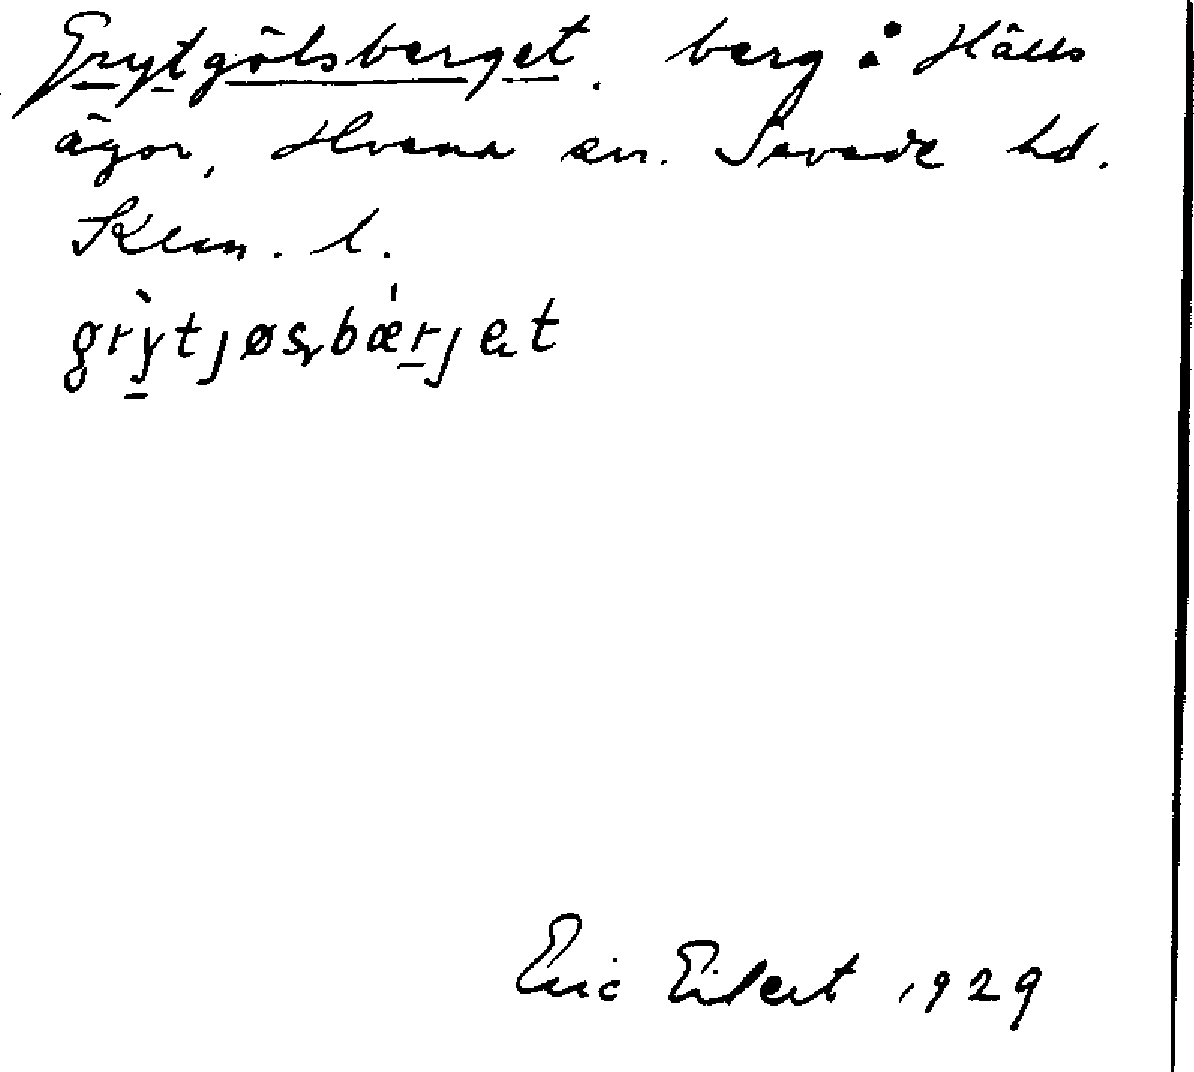 Grytgölsberget. berg å Hälls
ägor, Hvena sn. Sevede hd.
Klm. l.
grỳtjøsbǽrjet
Eric Eilert 1929